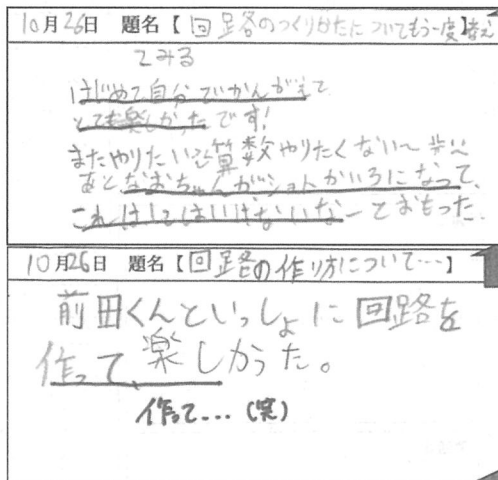 10月26日 題名【回路のつくりかたについてもう一度】考え
てみる
はじめて自分でかんがえて
とても楽しかったです!
またやりたいな算数やりたくない〜
あとなおちゃんがショートかいろになって、
これはしてはいけないなーとおもった。
10月26日 題名【回路の作り方について…】
前田くんといっしょに回路を
作って、楽しかった。
作って…(笑)